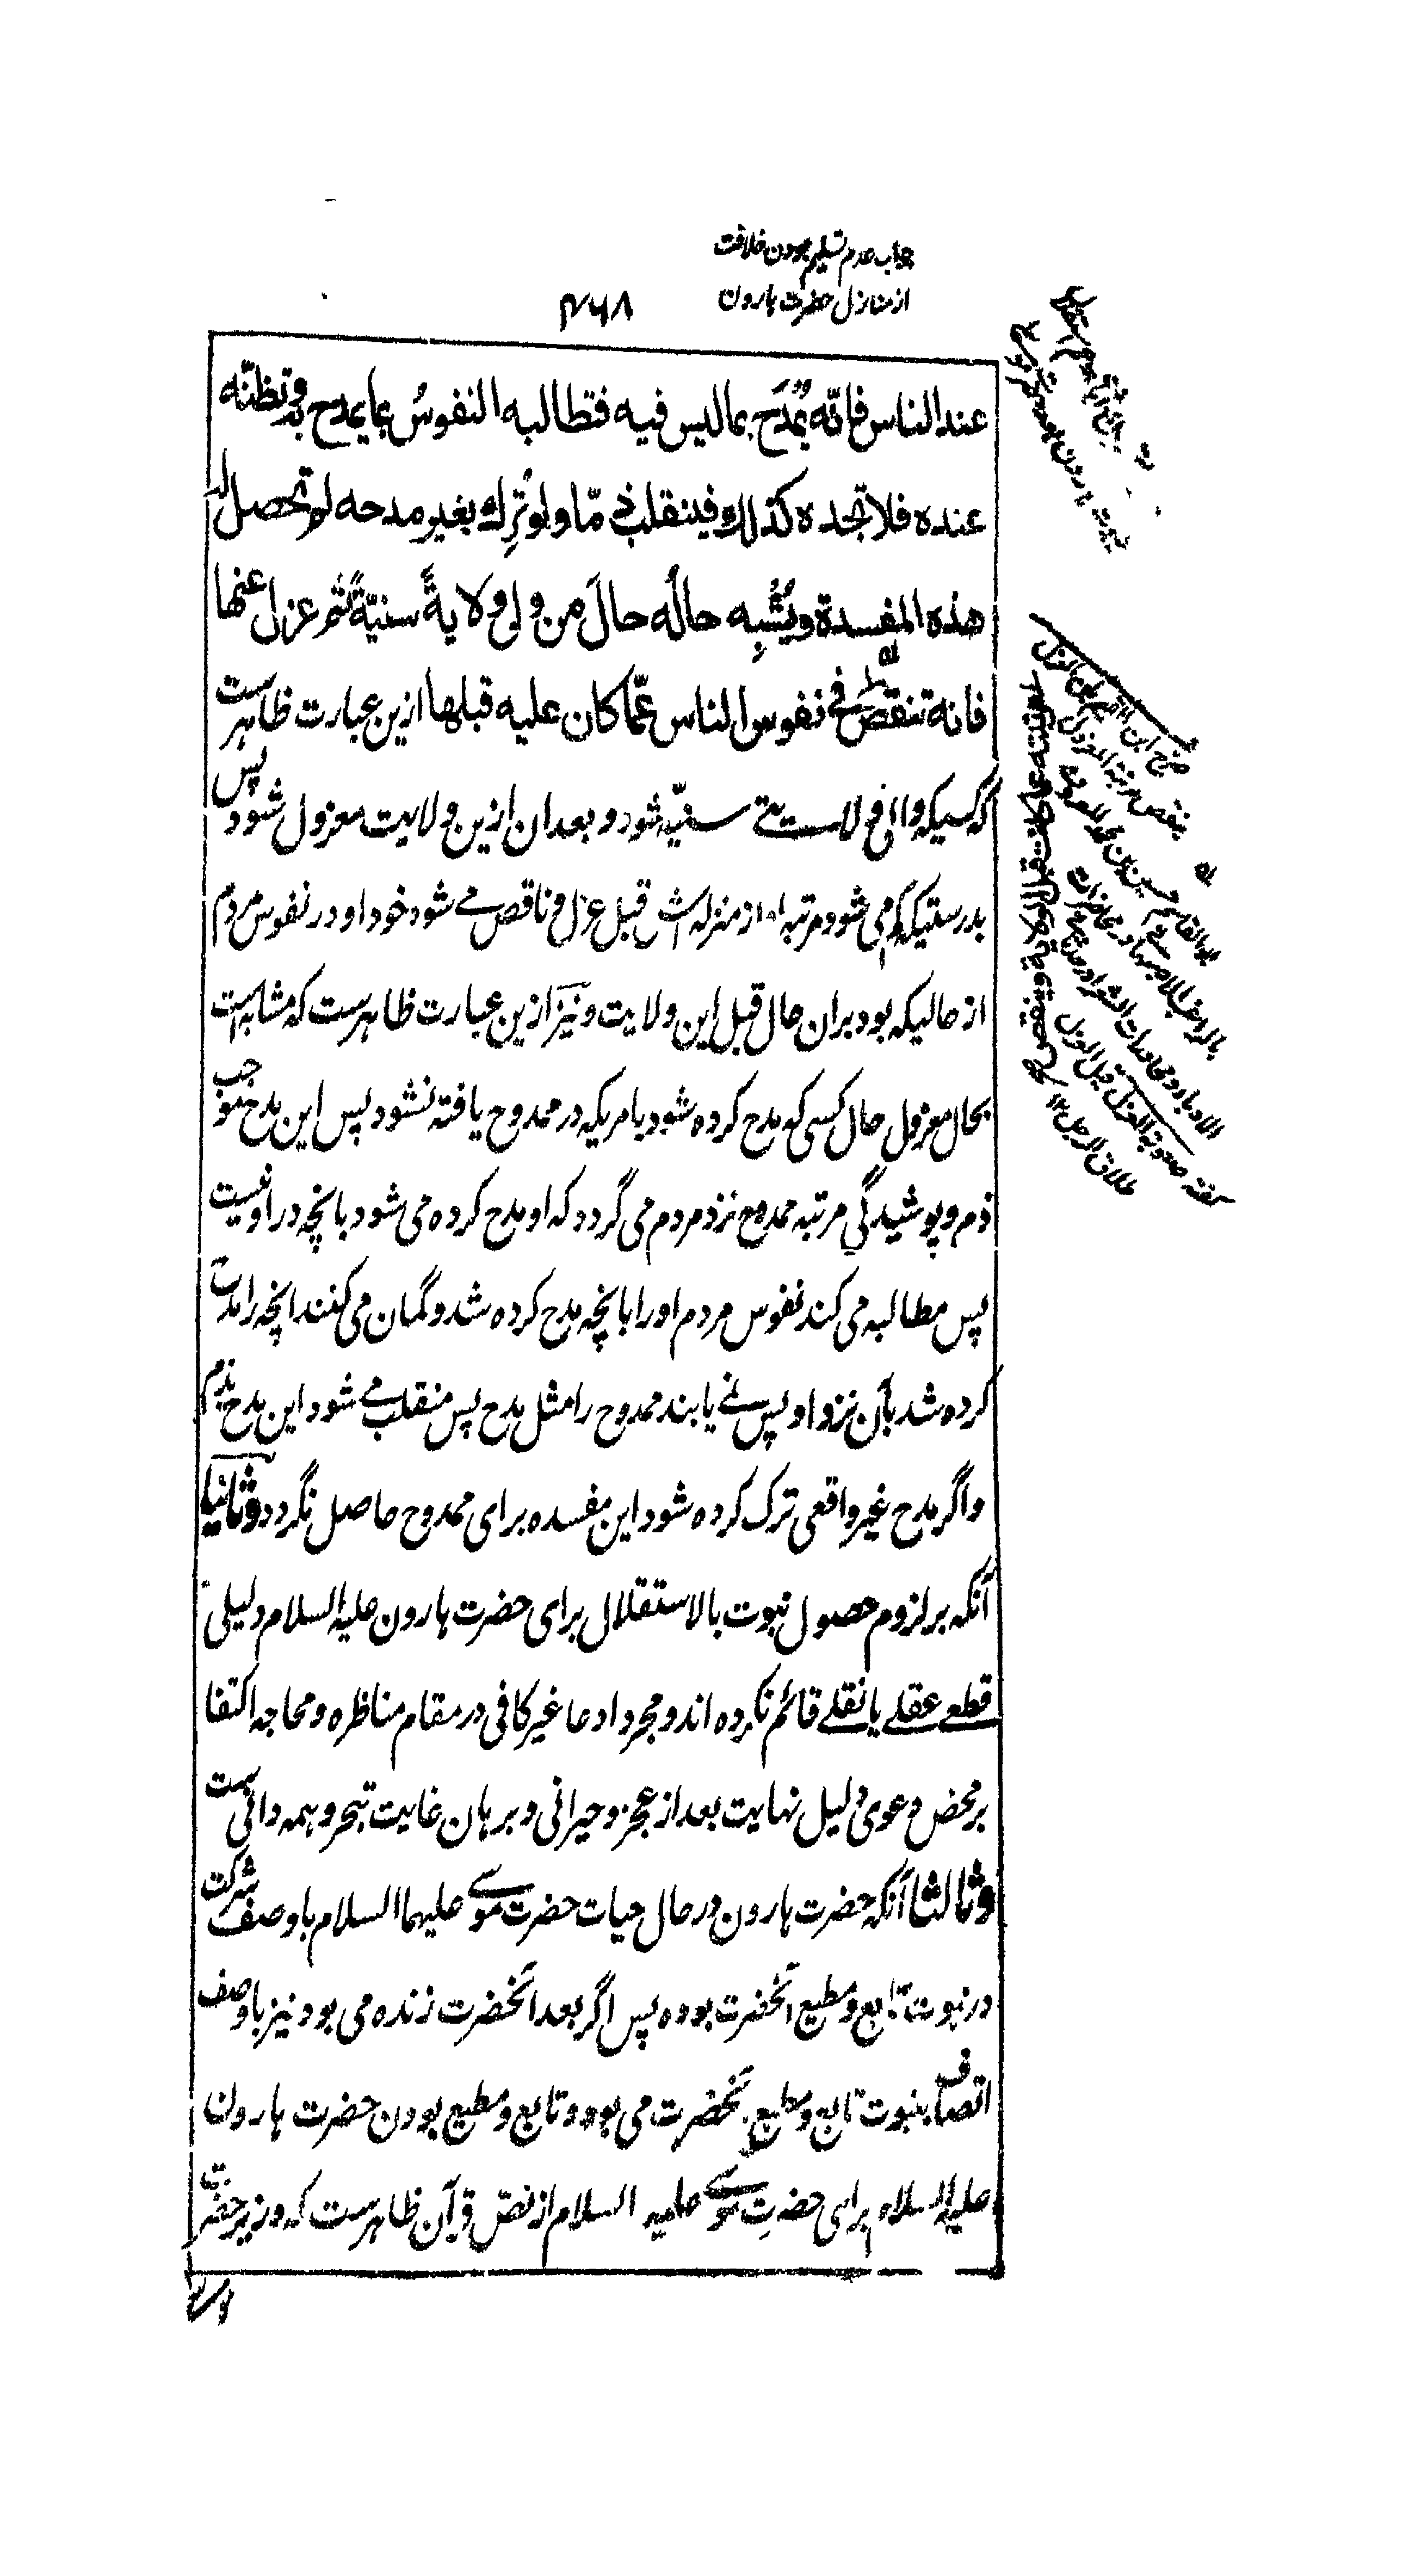 جواب عدم تسلیم بودن خلافت
از منازل حضرت هارون
۴۶۸
عند الناس فانّه یُمدَح بما لیس فیه فتطالبه النفوسُ بما یمدح به وتظنّه
عنده فلا تجده کذلک فینقلب ذمّا ولو تُرِک بغیر مدحه لم تحصل له
هذه المفسدة ویُشبِه حالُه حالَ من ولی ولایةً سنیّةً ثم عزل عنها
فانه تنقص فی نفوس الناس عمّا کان علیه قبلها ازین عبارت ظاهرست
که کسیکه والی ولایتے سنیّه شود و بعد ان ازین ولایت معزول شود پس
بدرستیکه کم می شود مرتبه او از منزله اش قبل عزل و ناقص مے شود خود او در نفوس مردم
از حالیکه بود بران حال قبل این ولایت و نیز ازین عبارت ظاهرست که مشابه است
بحال معزول حال کسی که مدح کرده شود بامریکه در ممدوح یافته نشود پس این مدح موجب
ذم و پوشیدگی مرتبه ممدوح نزد مردم می گردد که او مدح کرده می شود بانچه در او نیست
پس مطالبه می کند نفوس مردم او را بانچه مدح کرده شد و گمان می کنند انچه را مدح
کرده شد بآن نزد او پس نے یابند ممدوح را مثل مدح پس منقلب مے شود این مدح بذم
و اگر مدح غیر واقعی ترک کرده شود این مفسده برای ممدوح حاصل نگردد وثانیا
آنکه بر لزوم حصول نبوت بالاستقلال برای حضرت هارون علیه السلام دلیلی
قطعے عقلے یا نقلے قائم نکرده اند و مجرد ادعا غیر کافی در مقام مناظره و محاجه اکتفا
بر محض دعوی دلیل نهایت بعد از عجز و حیرانی و برهان غایت تبحر و همه دانی ست
وثالثا آنکه حضرت هارون در حال حیات حضرت موسے علیهما السلام با وصف شرکت
در نبوت تابع و مطیع آنحضرت بوده پس اگر بعد آنحضرت زنده می بود نیز با وصف
اتصاف بنبوت تابع و مطیع آنحضرت می بود و تابع و مطیع بودن حضرت هارون
علیه السلام برای حضرتِ موسے علیه السلام از نصّ قرآن ظاهرست که وزیر حضرت